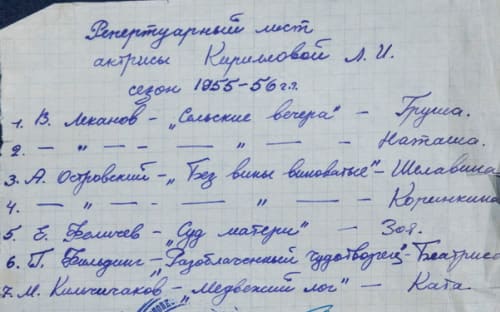 Репертуарный лист
актрисы Киримовой Л. И.
сезон 1955-56 г.г.
1. В. Леканов - „Сельские вечера" - Груша.
2. — " — — — " — — Наташа.
3. А. Островский - „Без вины виноватые" - Шелавина
4. — " — — — " — — Коринкина
5. Е. Беличев - „Суд матери" - Зоя.
6. Г. Фильдинг - „Разоблаченный чудотворец" - Беатриса
7. М. Кильчичаков - „Медвежий лог" - Ката.